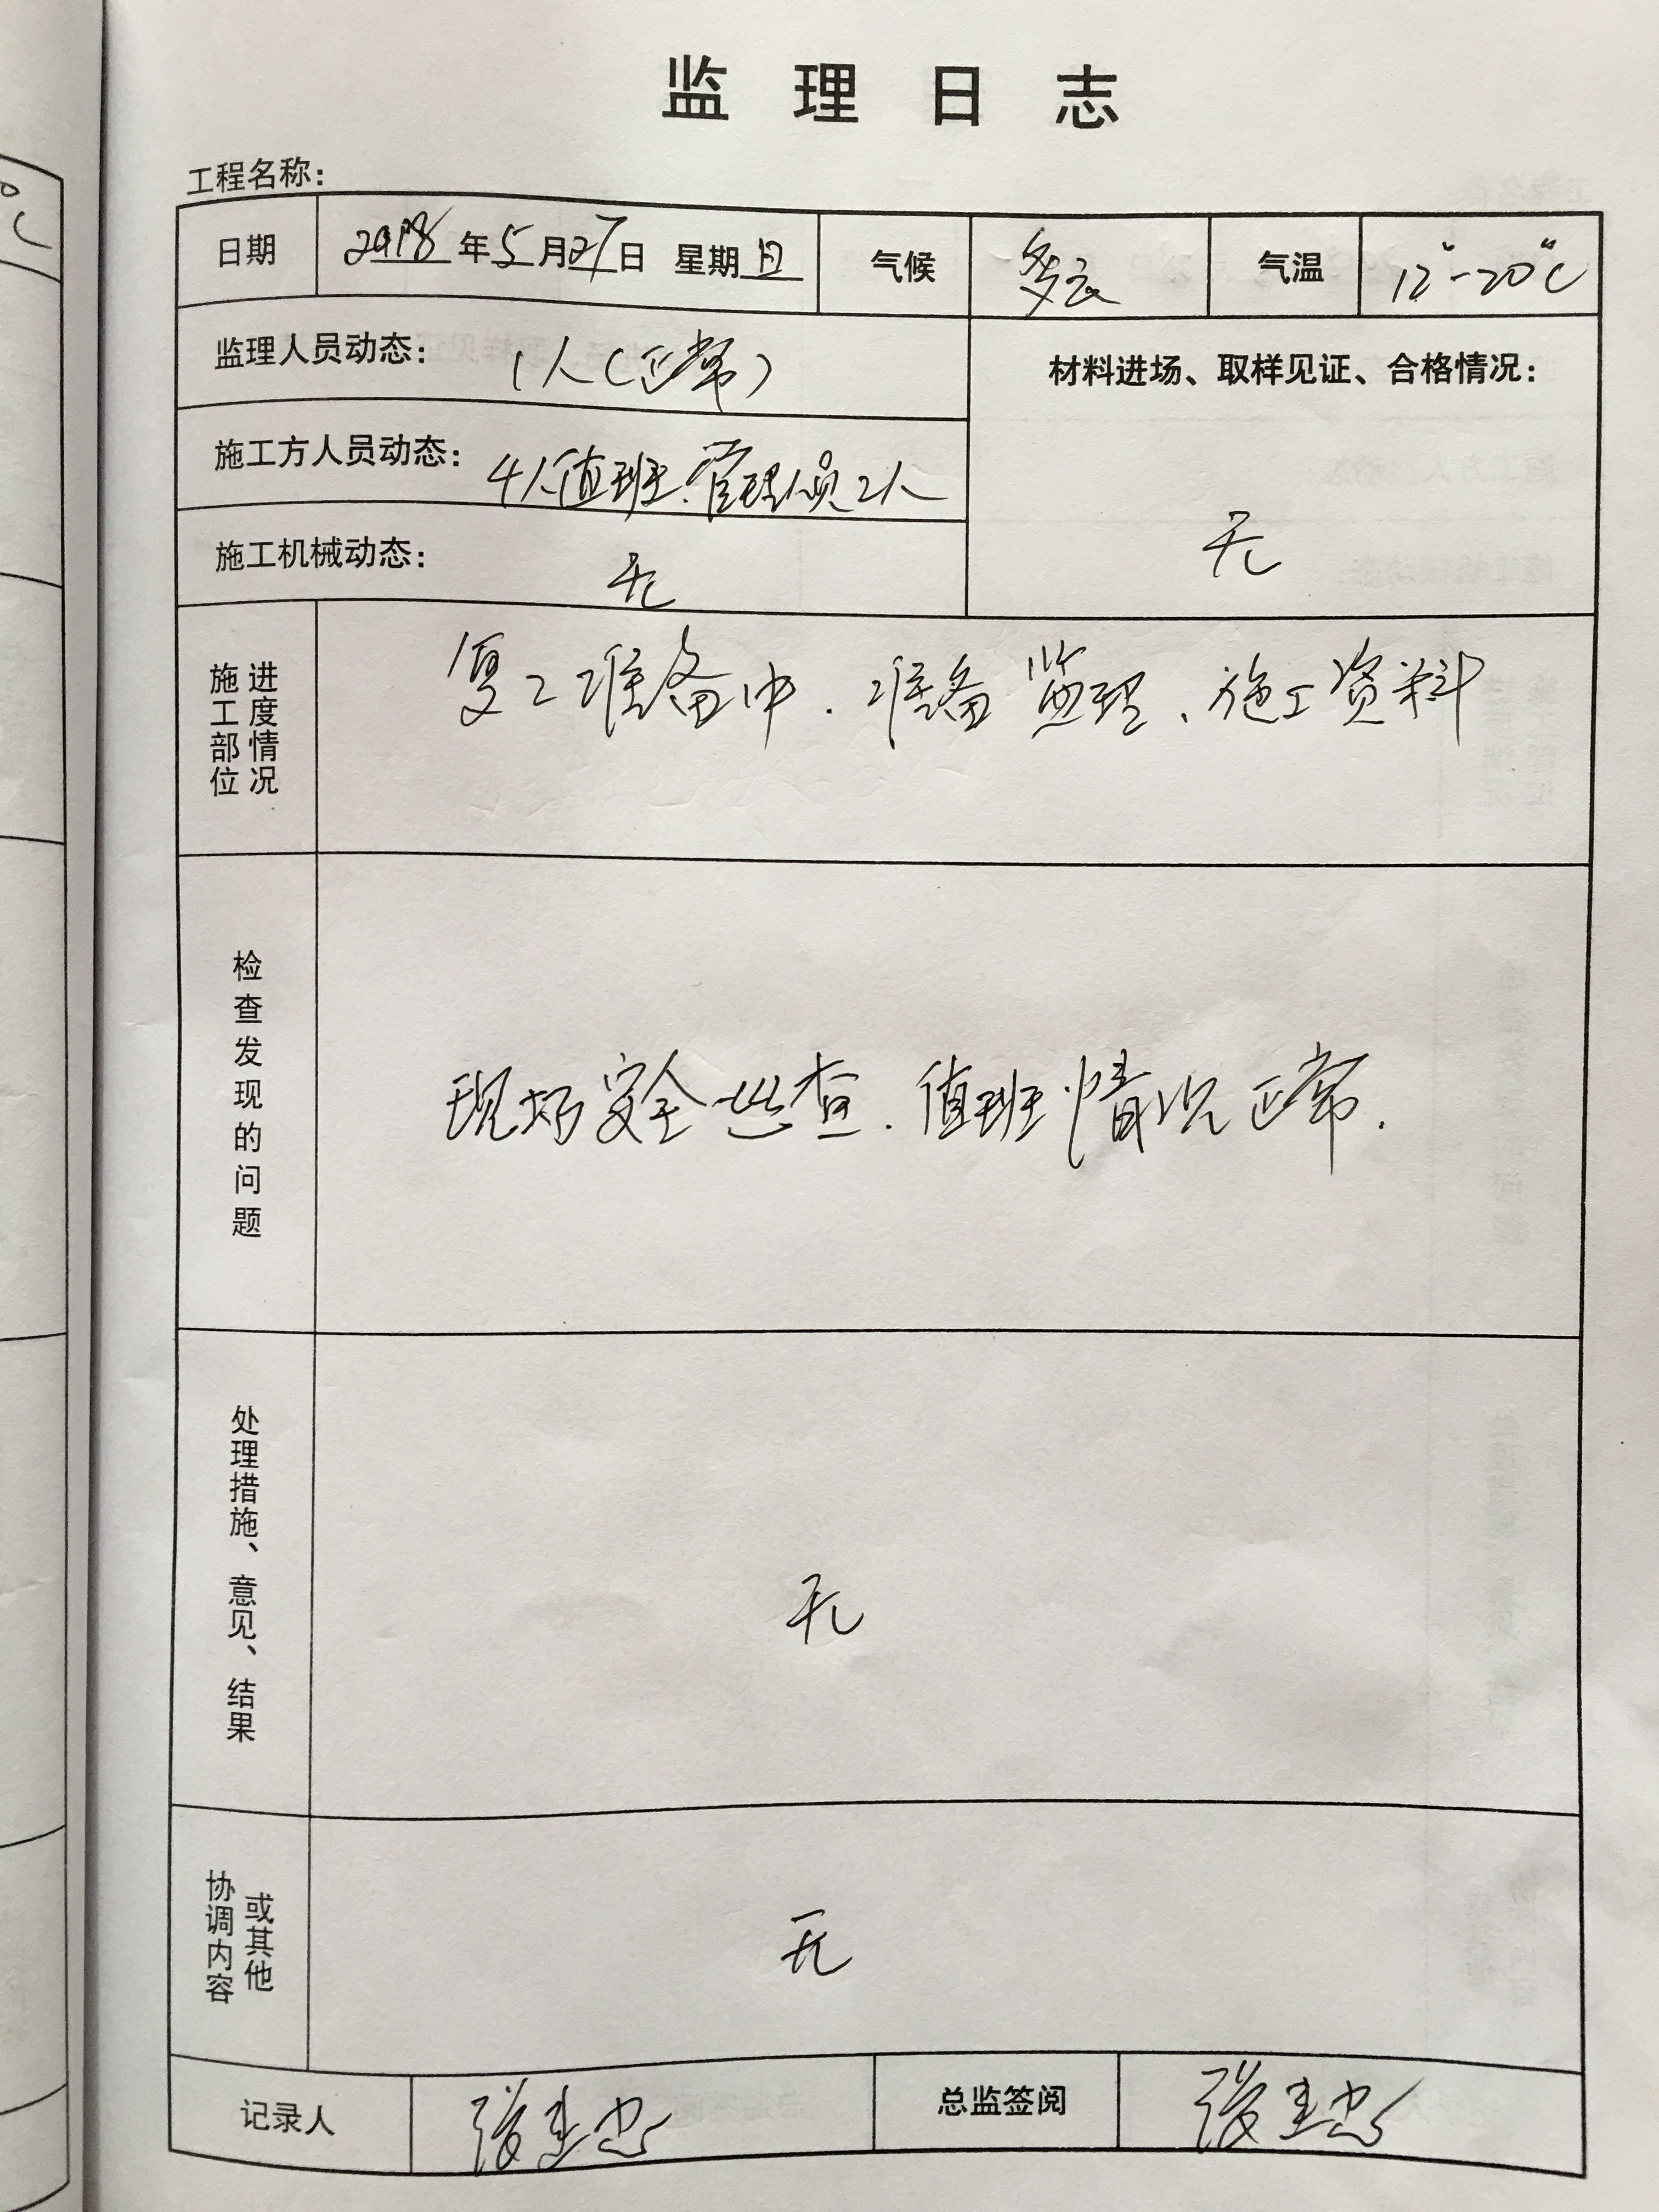 监理日志
工程名称：
日期 2018年5月27日 星期日 气候 多云 气温 12°-20℃
监理人员动态： 1人（正常）
材料进场、取样见证、合格情况：
无
施工方人员动态： 4人值班、管理人员2人
施工机械动态： 无
施工部位
进度情况
复工准备中．准备监理、施工资料
检查发现的问题
现场安全巡查．值班情况正常．
处理措施、意见、结果
无
协调内容
或其他
无
记录人 总监签阅